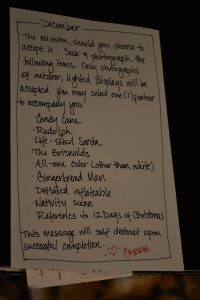 December
The mission, should you choose to
accept it: Seek & photograph the
following items. Only photographs
of outdoor, lighted displays will be
accepted. You may select one (1) partner
to accompany you.
· Candy Cane
· Rudolph
· Life-sized Santa
· The Griswolds
· All-one color (other than white)
· Gingerbread Man
· Deflated inflateable
· Nativity scene
· Reference to 12 Days of Christmas
This message will self destruct upon
successful completion.
-♡- Carrie